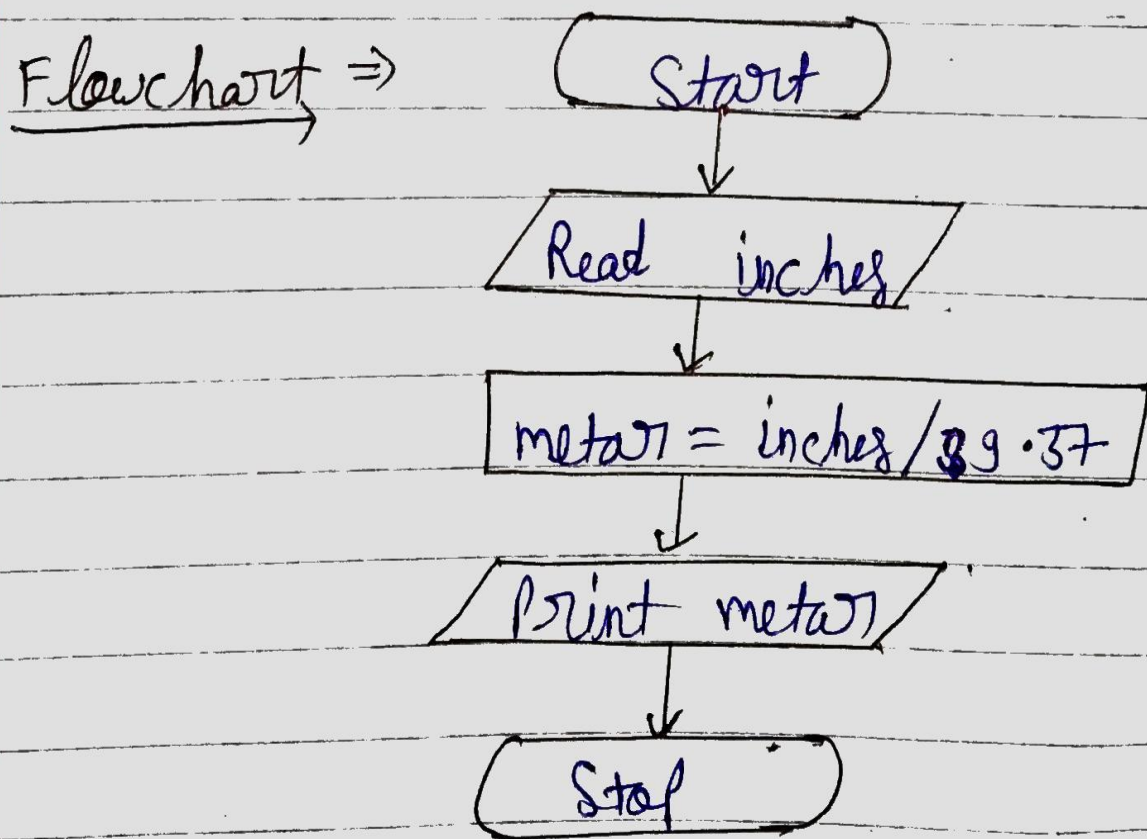 Flowchart ⇒ Start
Read inches
metar = inches/39.37
Print metar
Stop